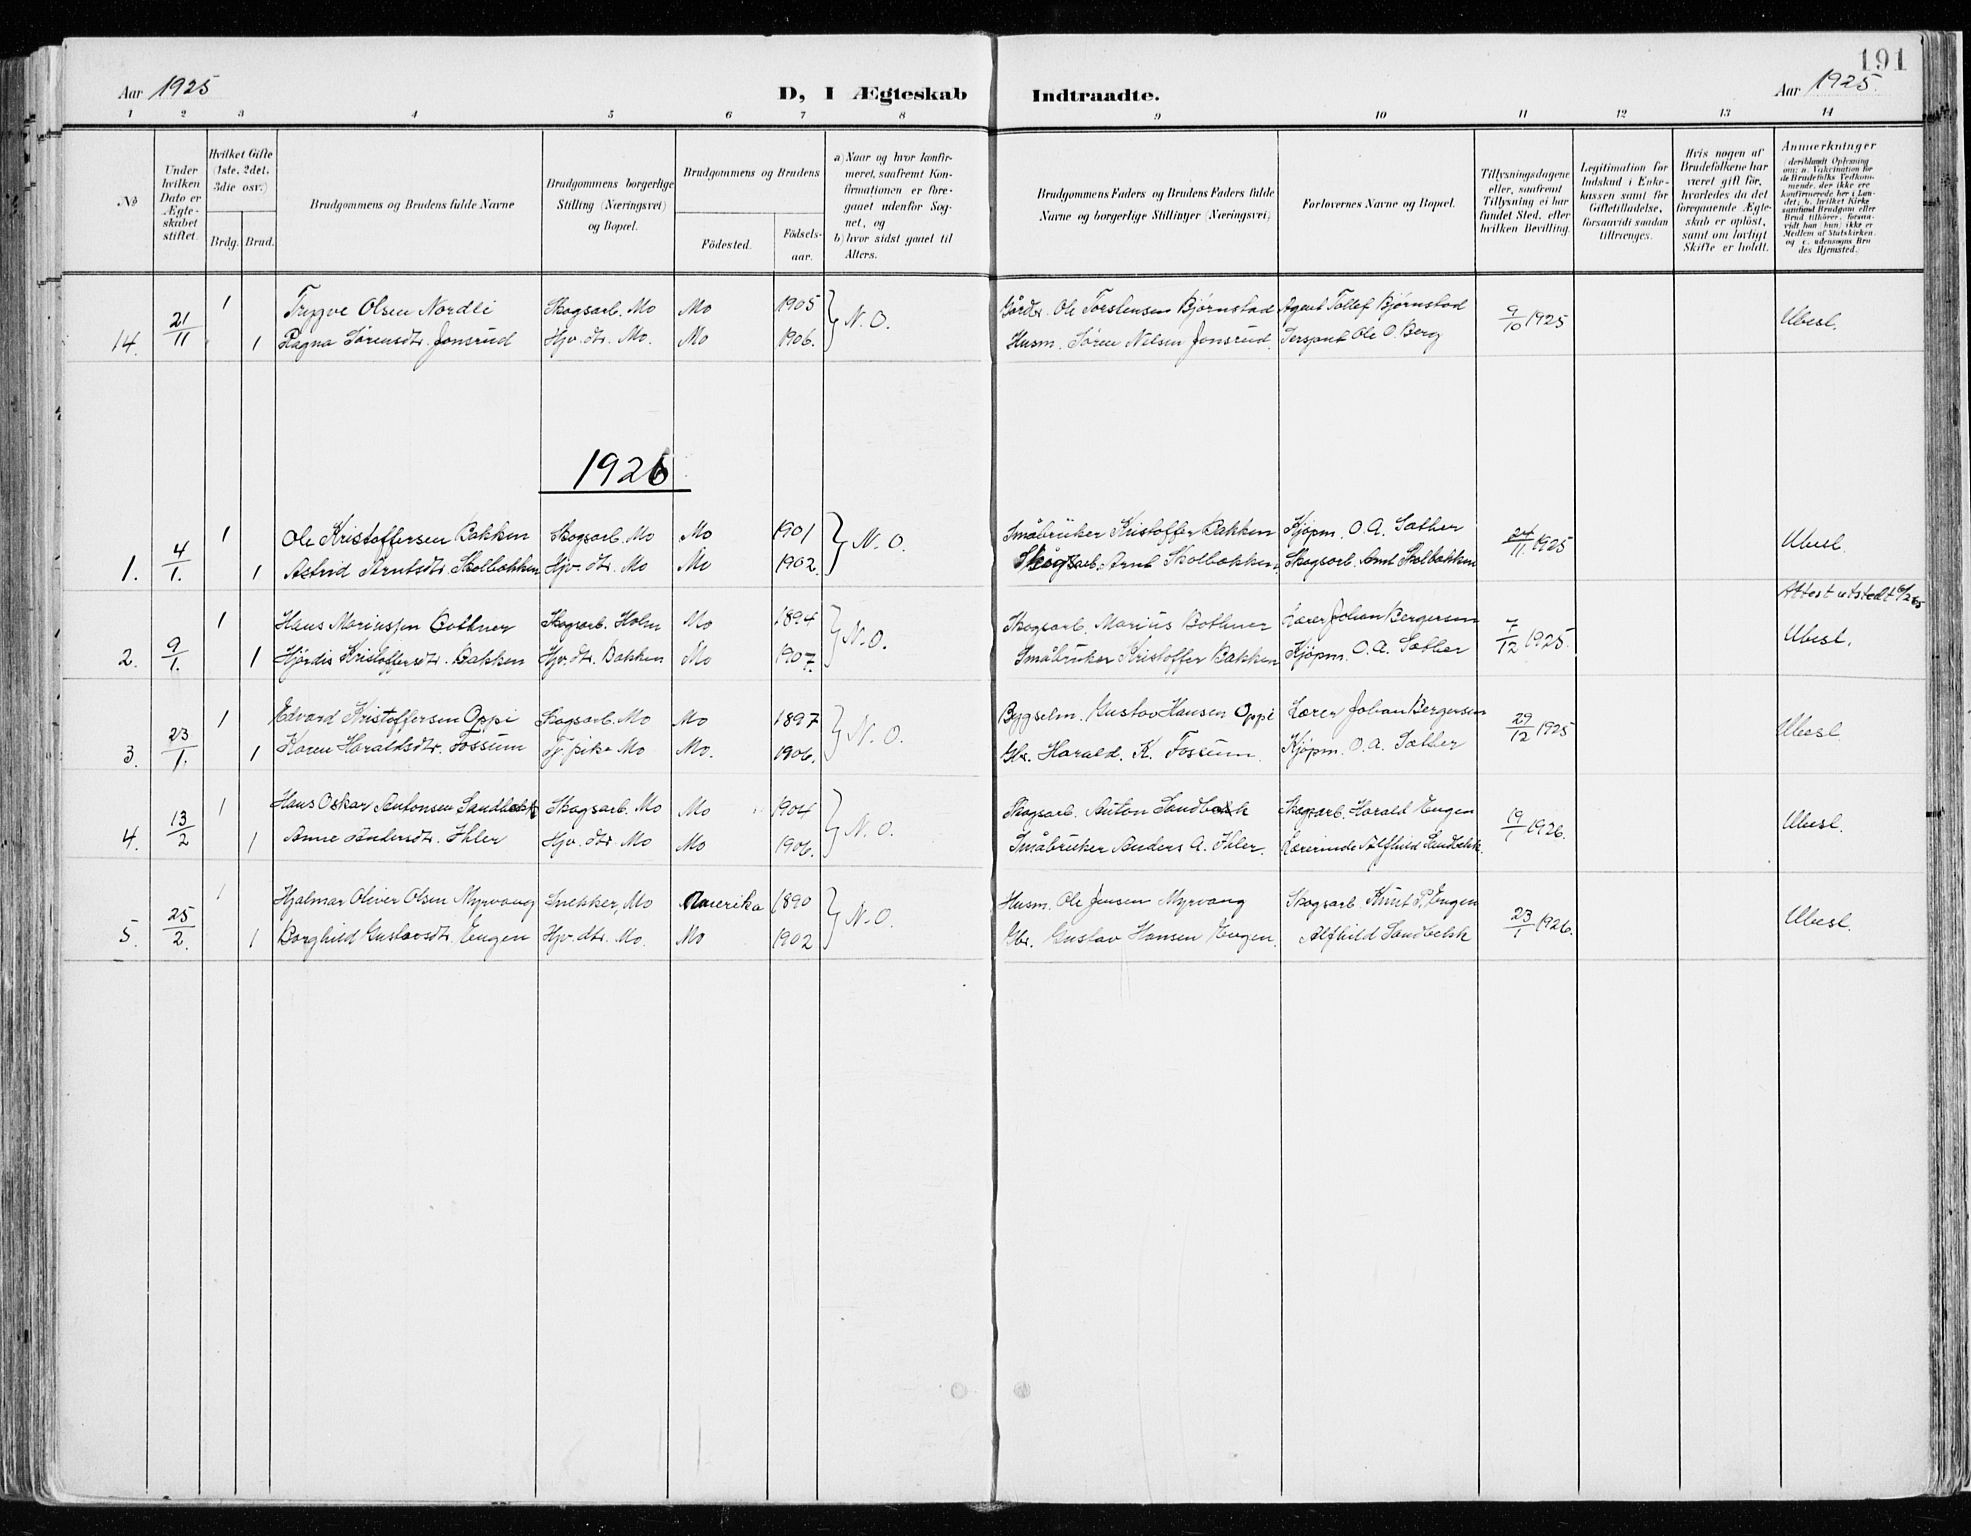 191
Aar 1925
D, I Ægteskab Indtraadte.
Aar 1925.
1 2 3 4 5 6 7 8 9 10 11 12 13 14
No
Under hvilken Dato er Ægteskabet stiftet.
Hvilket Gifte (1ste, 2det, 3die osv.)
Brdg. Brud.
Brudgommens og Brudens fulde Navne
Brudgommens borgerlige Stilling (Næringsvei) og Bopæl.
Brudgommens og Brudens
Födested.
Födsels-aar.
a) Naar og hvor konfirmeret, saafremt Konfirmationen er foregaaet udenfor Sognet, og
b) hvor sidst gaaet til Alters.
Brudgommens Faders og Brudens Faders fulde Navne og borgerlige Stillinger (Næringsvei)
Forlovernes Navne og Bopæl.
Tillysningsdagene eller, saafremt Tillysning ei har fundet Sted, efter hvilken Bevilling.
Legitimation for Indskud i Enkekassen samt for Giftetilladelse, forsaavidt saadan tiltrænges.
Hvis nogen af Brudefolkene har været gift før, hvorledes da det foregaaende Ægteskab er opløst, samt om lovligt Skifte er holdt.
Anmerkninger
(deriblandt Oplysning om: a. Vakcination for de Brudefolks Vedkommende, der ikke ere konfirmerede her i Landet; b. hvilket Kirkesamfund Brudgom eller Brud tilhører, forsaavidt han (hun) ikke er Medlem af Statskirken, og c. udensogns Brudes Hjemsted.
14. 21/11 1 Trygve Olsen Nordli Skogsarb. Mo Mo 1905 N. O. Gårdbr. Ole Torstensen Bjørnstad Agent Tollef Bjørnstad 9/10 1925 Ubesl.
1 Ragna Sørensdtr. Jonsrud Hjv. dtr. Mo. Mo 1906. Husm. Søren Nilsen Jonsrud. Ole O. Berg
1926
1. 4/1. 1 Ole Kristoffersen Bakken Skogsarb. Mo Mo 1901 N. O. Småbruker Kristoffer Bakken Kjøpm. O. A. Sæther 24/11 1925 Ubesl.
1 Astrid Arntsdtr. Skolbakken Hjv. dtr. Mo Mo 1902. Skogsarb. Arnt Skolbakken. Skogsarb. Arnt Skolbakken
Attest utstedt
2. 9/1. 1 Hans Mariussen Bothner Skogsarb. Holm Mo 1894 N. O. Skogsarb. Marius Bothner Lærer Johan Bergersen 7/12 1925. Ubesl.
1 Hjördis Kristoffersdtr. Bakken Hjv. dtr. Bakken Mo 1907. Småbruker Kristoffer Bakken Kjöpm. O. A. Sæther
3. 23/1. 1 Edvard Kristoffersen Oppi Skogsarb. Mo Mo 1897 N. O. Byggselm. Gustav Hansen Oppi Lærer Johan Bergersen 29/12 1925 Ubesl.
1 Karen Haraldsdtr. Fossum Tj. pike Mo Mo. 1906. Gbr. Harald. K. Fossum. Kjøpm. O. A. Sæther
4. 13/2 1 Hans Oskar Antonsen Sandbækk Skogsarb. Mo Mo 1904 N. O. Skogsarb. Anton Sandbækk Skogsarb. Harald Engen 19/1 1926. Ubesl.
1 Anne Andersdtr. Ihler Hjv. dtr. Mo Mo 1906. Småbruker Anders A. Ihler. Lærerinde Alfhild Sandbekk.
5. 25/2. 1 Hjalmar Oliver Olsen Myrvang Snekker, Mo Amerika 1890 N. O. Husm. Ole Jensen Myrvang Skogsarb. Knut P. Engen 23/1 1926. Ubesl.
1 Borghild Gustavsdtr. Engen Hjv. dtr. Mo. Mo 1902 Gbr. Gustav Hansen Engen. Alfhild Sandbekk